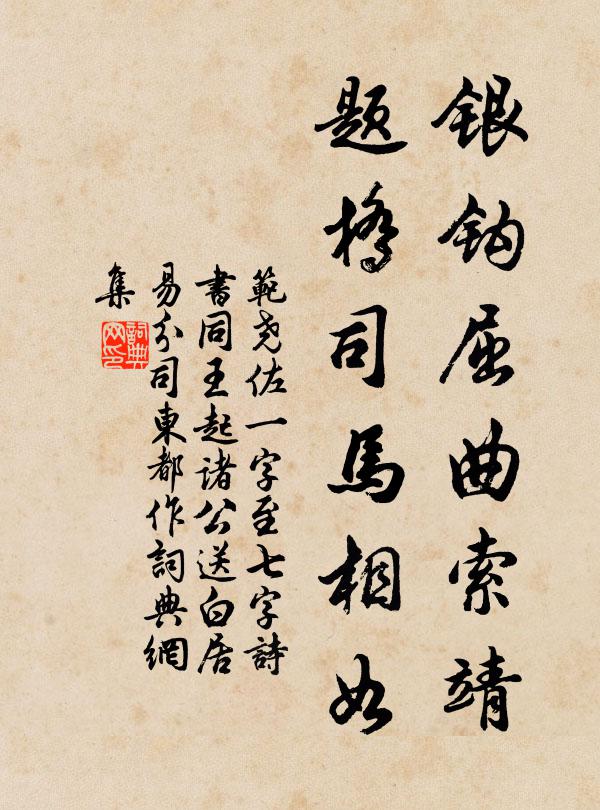 银钩屈曲索靖
题桥司马相如
範尧佐一字至七字詩
書同王起诸公送白居
易分司東都作詞典網
集
詞典网印